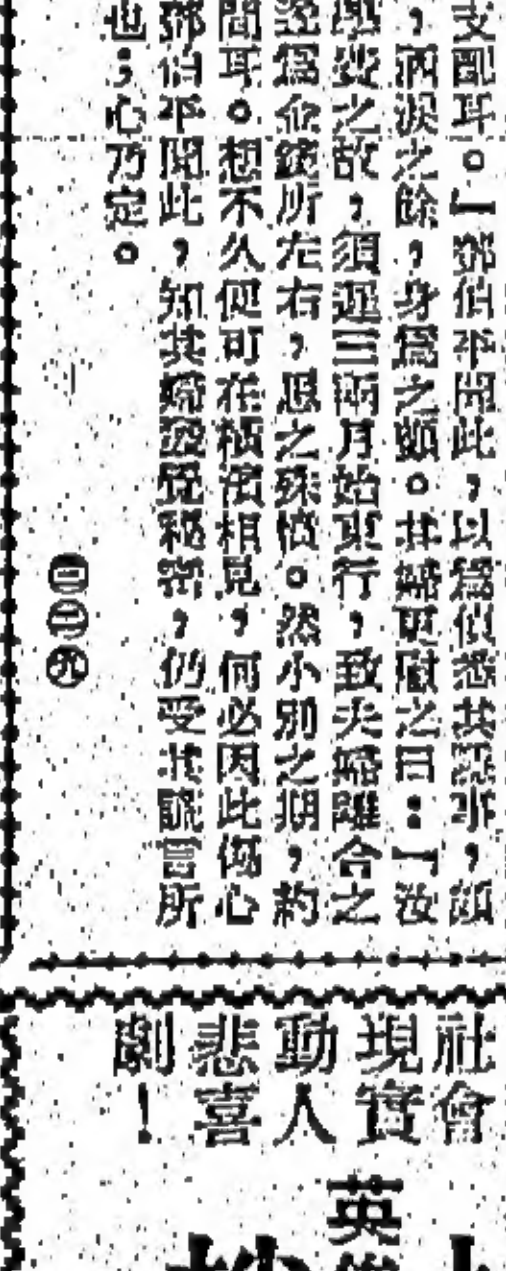 支配耳。」鄧伯平聞此，以爲偵悉其事，
，洒淚之餘，身爲之顫。其婦更慰之曰：「汝
學費之故，須遲三兩月始東行，致夫婦離合之
爲金錢所左右，思之殊憤。然小別之期，約
間耳。想不久便可在橫濱相見，何必因此傷心
鄧伯平聞此，知其婦發覺秘密，仍受其謊言所
也；心乃定。
二二九
社會
現實
動人
悲喜
劇！
英